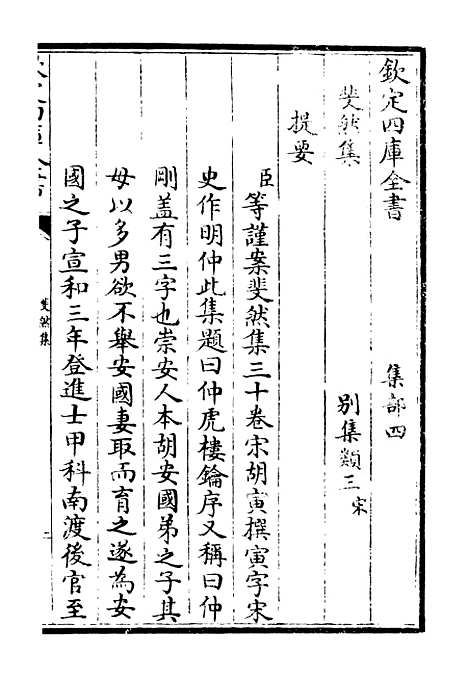 欽定四庫全書　　　集部四
斐然集　　　別集類三宋
提要
臣等謹案斐然集三十卷宋胡寅撰寅字宋
史作明仲此集題曰仲虎樓鑰序又稱曰仲
剛盖有三字也崇安人本胡安國弟之子其
母以多男欲不舉安國妻取而育之遂為安
國之子宣和三年登進士甲科南渡後官至
斐然集